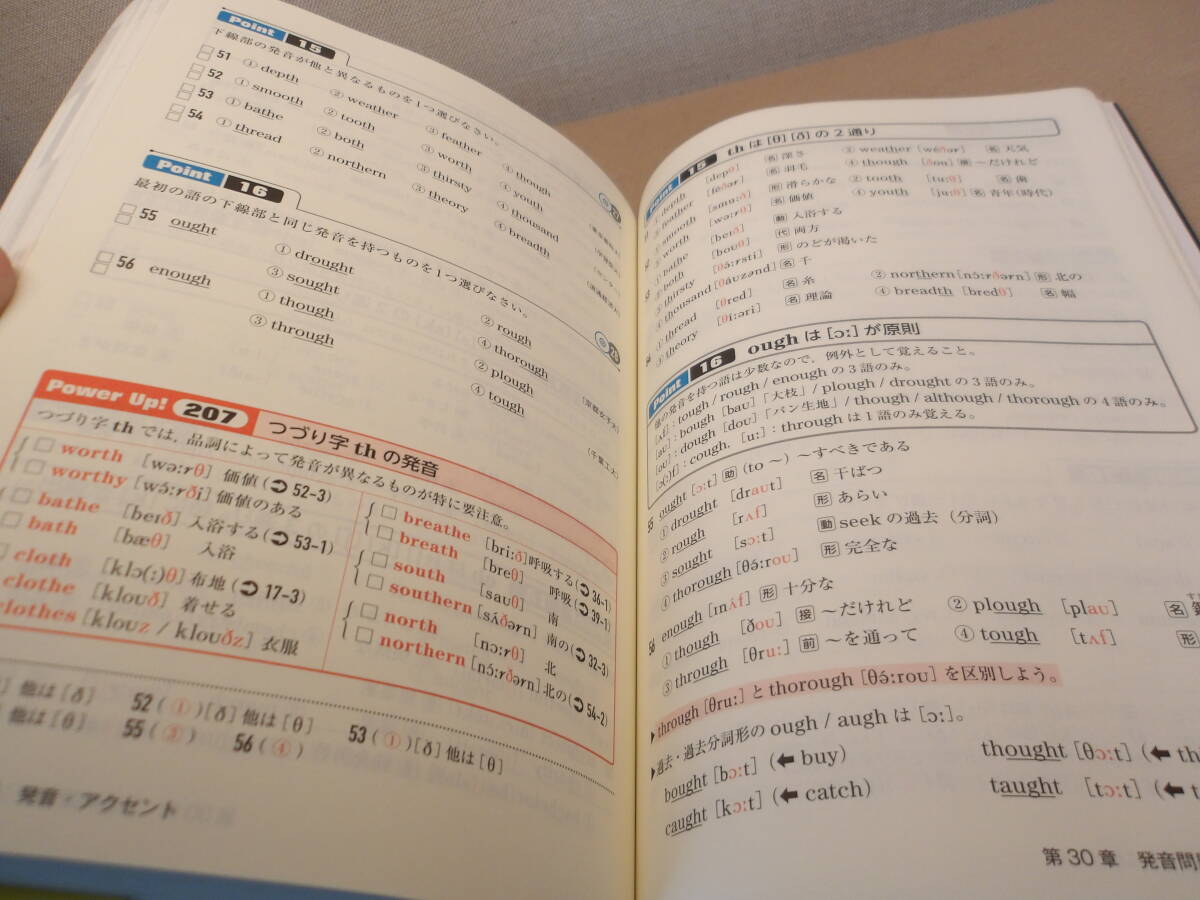 Point 15
下線部の発音が他と異なるものを1つ選びなさい。
51 ① depth ② weather ③ feather ④ though
52 ① smooth ② tooth ③ worth ④ youth
53 ① bathe ② both ③ thirsty ④ thousand
54 ① thread ② northern ③ theory ④ breadth
Point 16
最初の語の下線部と同じ発音を持つものを1つ選びなさい。
55 ought ① drought ② rough
③ sought ④ thorough
56 enough ① though ② plough
③ through ④ tough
(京都女子大)
(千葉工大)
Power Up! 207 つづり字 th の発音
つづり字 th では,品詞によって発音が異なるものが特に要注意。
worth [wə:rθ] 価値(➲ 52-3)
worthy [wə́:rði] 価値のある
bathe [beɪð] 入浴する(➲ 53-1)
bath [bæθ] 入浴
cloth [klɔ(:)θ] 布地(➲ 17-3)
clothe [kloʊð] 着せる
clothes [kloʊz / kloʊðz] 衣服
breathe [bri:ð] 呼吸する(➲ 36-1)
breath [breθ] 呼吸(➲ 39-1)
south [saʊθ] 南
southern [sʌ́ðərn] 南の(➲ 32-3)
north [nɔ:rθ] 北
northern [nɔ́:rðərn] 北の(➲ 54-2)
] 他は [ð] 52 (①) [ð] 他は [θ] 53 (①) [ð] 他は [θ]
他は [θ] 55 (③) 56 (④)
発音・アクセント
Point 15 th は [θ] [ð] の2通り
① depth [depθ] 名 深さ ② weather [wéðər] 名 天気
③ feather [féðər] 名 羽毛 ④ though [ðoʊ] 接 ~だけれど
① smooth [smu:ð] 形 滑らかな ② tooth [tu:θ] 名 歯
③ worth [wə:rθ] 名 価値 ④ youth [ju:θ] 名 青年(時代)
① bathe [beɪð] 動 入浴する
② both [boʊθ] 代 両方
③ thirsty [θə́:rsti] 形 のどが渇いた
④ thousand [θáʊzənd] 名 千
① thread [θred] 名 糸 ② northern [nɔ́:rðərn] 形 北の
③ theory [θí:əri] 名 理論 ④ breadth [bredθ] 名 幅
Point 16 ough は [ɔ:] が原則
他の発音を持つ語は少数なので,例外として覚えること。
[ʌf] : tough / rough / enough の3語のみ。
[aʊ] : bough [baʊ]「大枝」/ plough / drought の3語のみ。
[oʊ] : dough [doʊ]「パン生地」/ though / although / thorough の4語のみ。
[ɔ(:)f] : cough, [u:] : through は1語のみ覚える。
55 ought [ɔ:t] 助 (to ~) ~すべきである
① drought [draʊt] 名 干ばつ
② rough [rʌf] 形 あらい
③ sought [sɔ:t] 動 seek の過去(分詞)
④ thorough [θə́:roʊ] 形 完全な
56 enough [ɪnʌ́f] 形 十分な
① though [ðoʊ] 接 ~だけれど ② plough [plaʊ] 名
③ through [θru:] 前 ~を通って ④ tough [tʌf] 形
▶through [θru:] と thorough [θə́:roʊ] を区別しよう。
▶過去・過去分詞形の ough / augh は [ɔ:]。
bought [bɔ:t] (← buy) thought [θɔ:t] (← th
caught [kɔ:t] (← catch) taught [tɔ:t] (← t
第30章 発音問